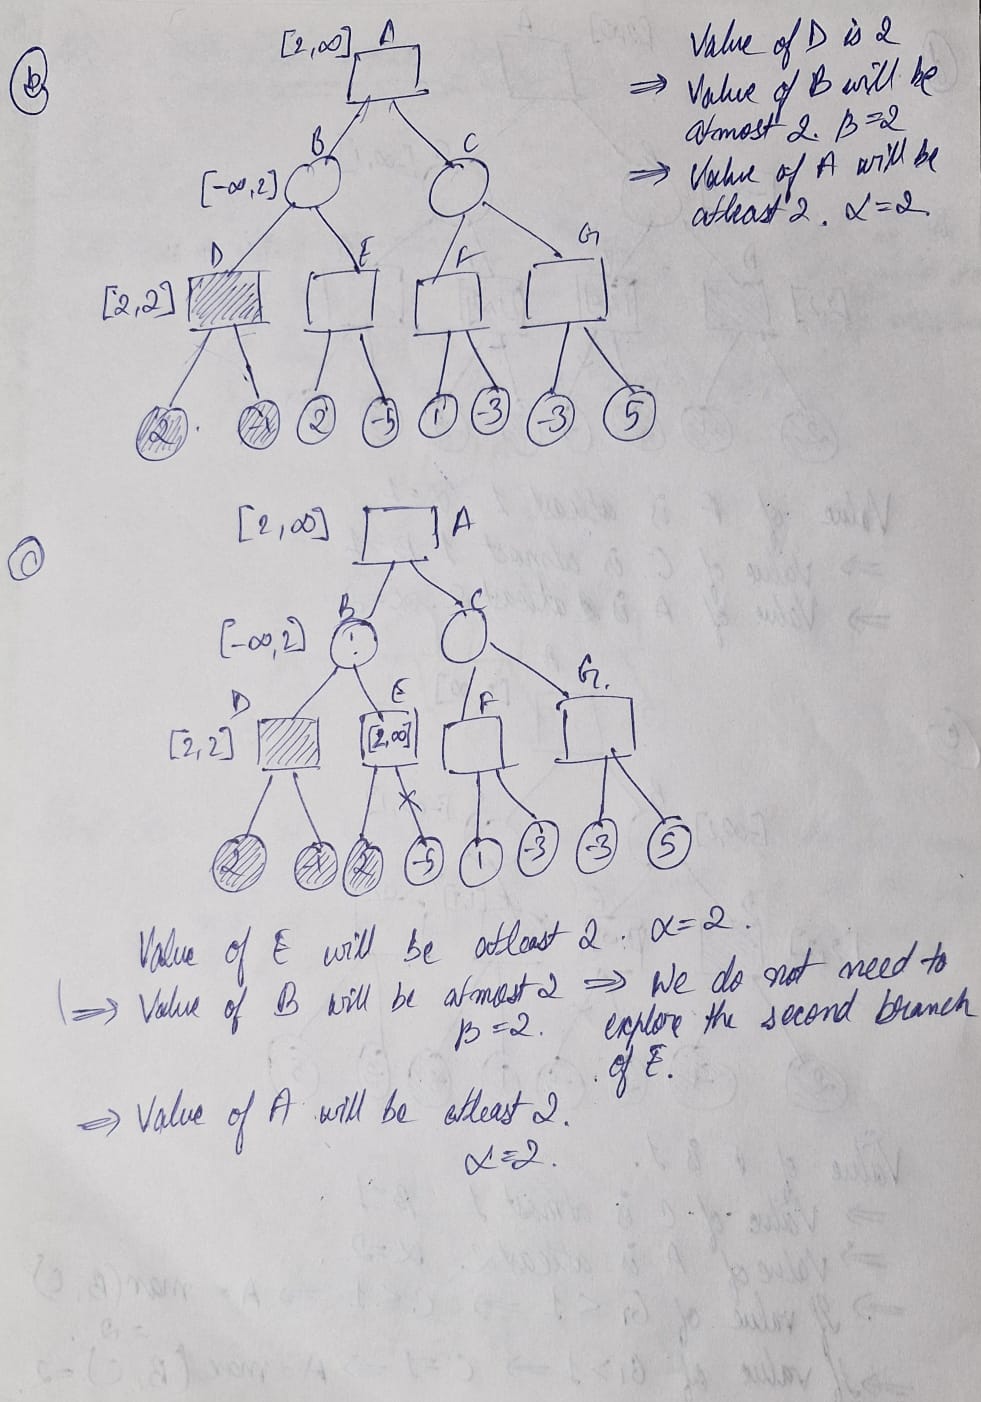 (b)
[2,∞] A
B C
[-∞,2]
D E F G
[2,2]
2 2 -5 1 -3 -3 5
Value of D is 2
⇒ Value of B will be
atmost 2. β=2
⇒ Value of A will be
atleast 2. α=2
(c)
[2,∞] A
B C
[-∞,2]
D E F G.
[2,2] [2,∞]
2 2 -5 1 -3 -3 5
Value of E will be atleast 2. α=2.
⇒ Value of B will be atmost 2 ⇒ We do not need to
β=2. explore the second branch
of E.
⇒ Value of A will be atleast 2.
α=2.